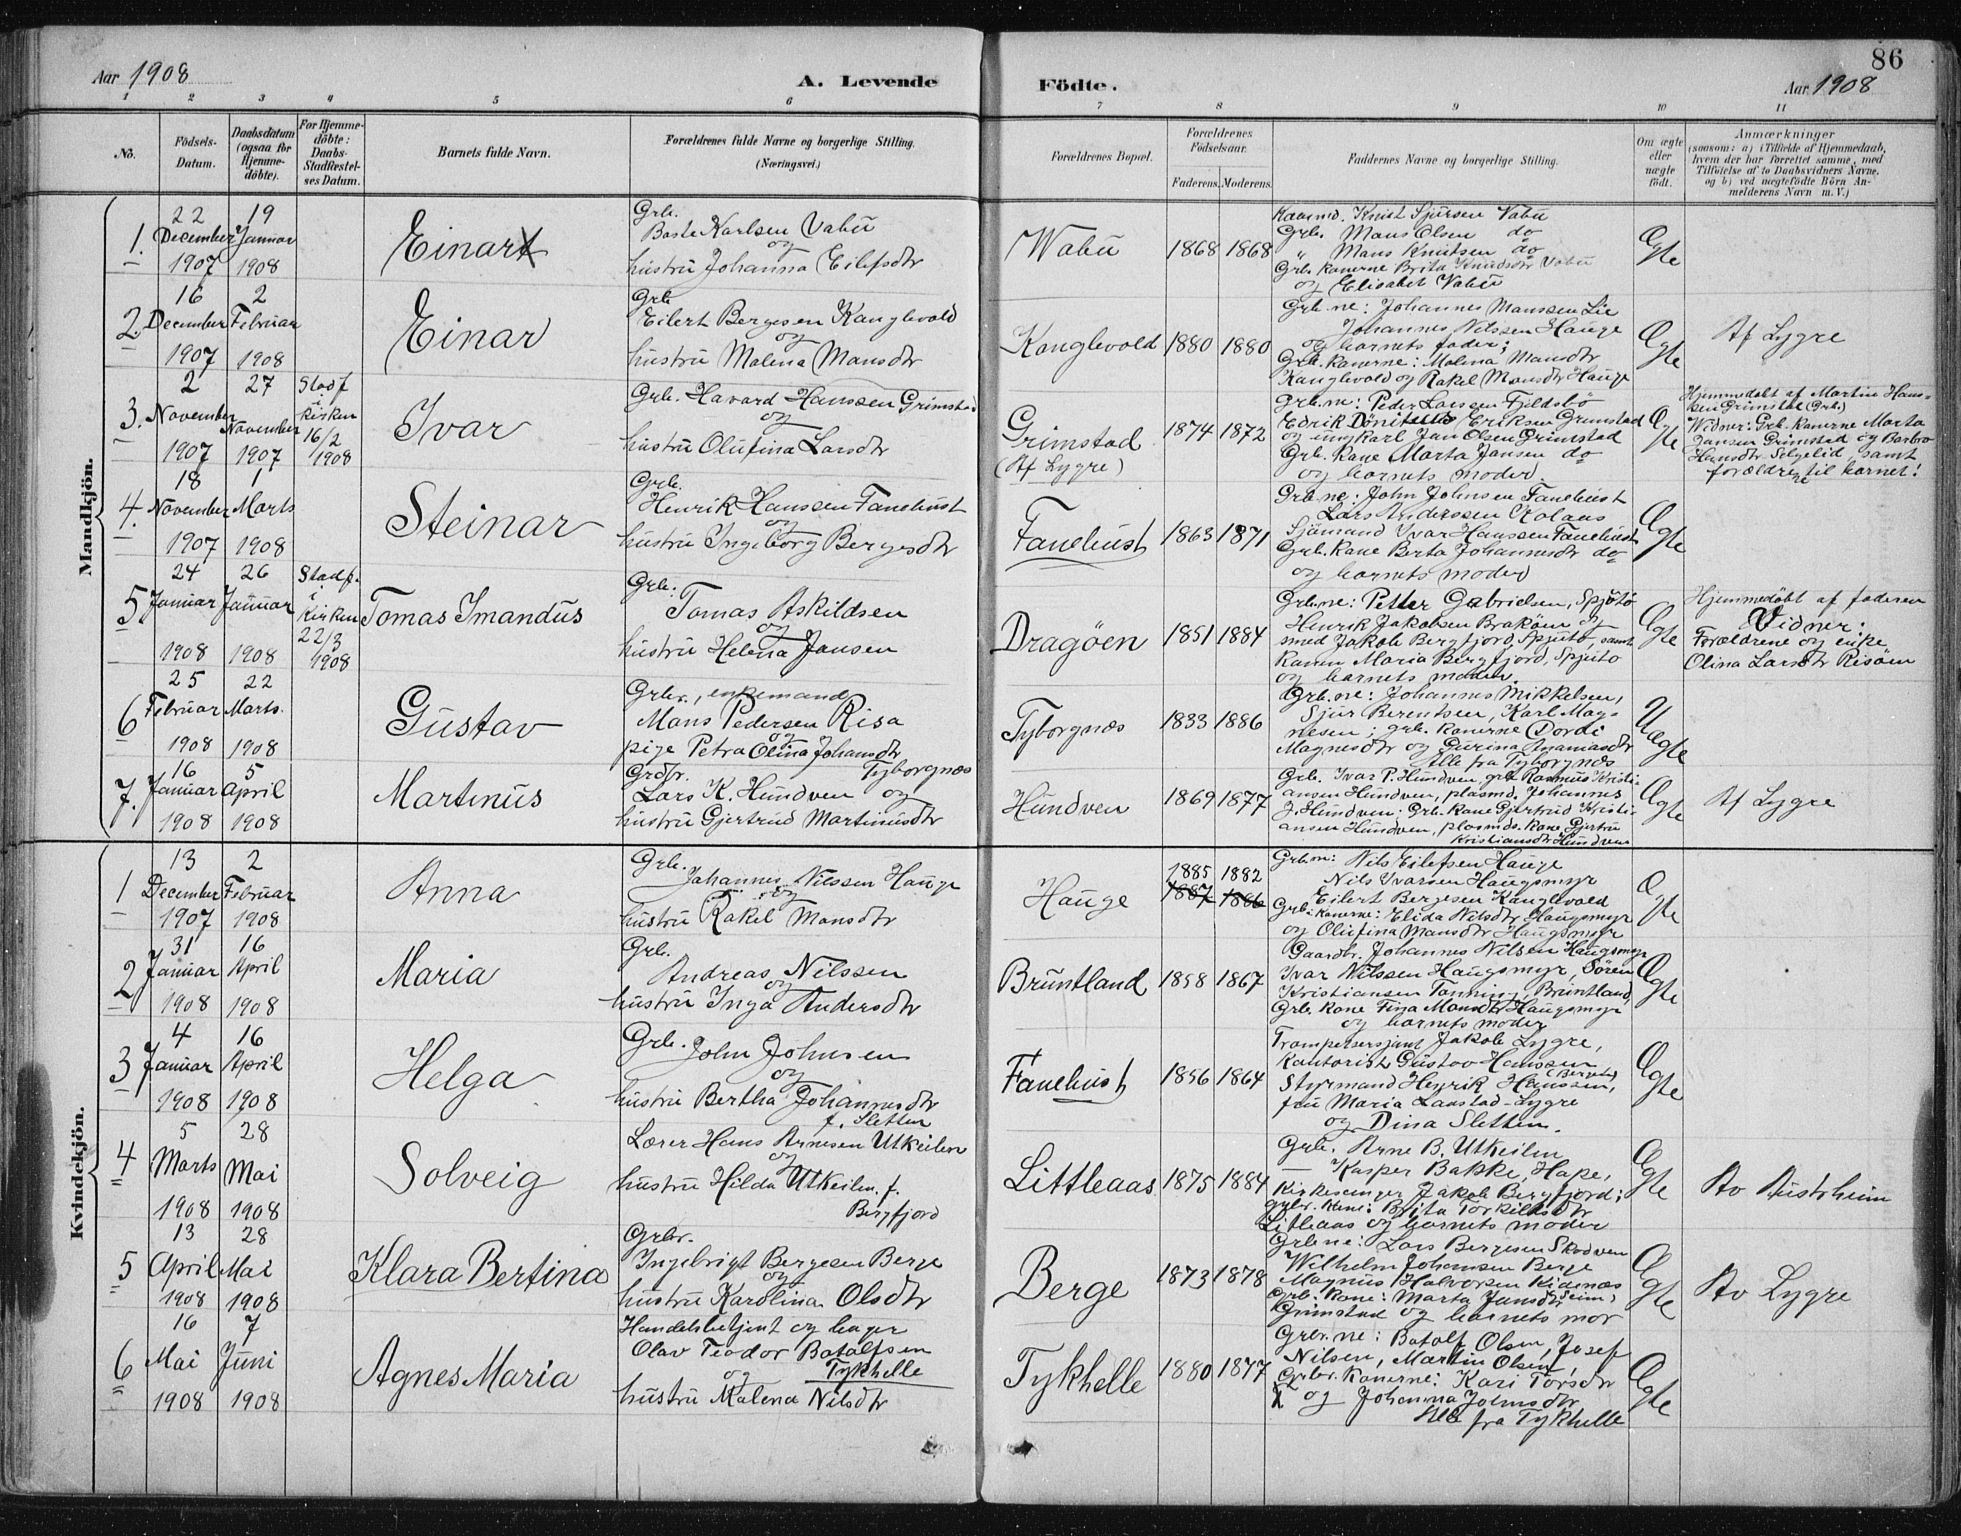 86
Aar 1908
A. Levende Födte.
Aar 1908
1 2 3 4 5 6 7 8 9 10 11
No.
Födsels-
Datum.
Daabsdatum
(ogsaa for
Hjemme-
döbte).
For Hjemme-
döbte:
Daabs-
Stadfæstel-
ses Datum.
Barnets fulde Navn.
Forældrenes fulde Navne og borgerlige Stilling.
(Næringsvei.)
Forældrenes Bopæl.
Forældrenes
Födselsaar.
Faderens. Moderens.
Faddernes Navne og borgerlige Stilling.
Om ægte
eller
uægte
födt.
Anmærkninger
(saasom: a) i Tilfælde af Hjemmedaab,
hvem der har forrettet samme, med
Tilföielse af to Daabsvidners Navne,
og b) ved uægtefödte Börn An-
melderens Navn m. V.)
Mandkjön.
1.
22
December
1907
19
Januar
1908
Einar
Grb.
Karlsen Vabü
og
hustrü Johanna Eilefsdtr
Wabü
1868 1868
Kaarmd. Knüt Sjursen Vabü
Grb. Mons Olsen do
" Mons Knütsen do
Grb. Kanerne Brita Knudsdtr Vabü
og Elisabet Vabü
Ægte
2.
16
December
1907
2
Februar
1908
Einar
Grb
Eilert Bergesen Kanglevold
og
hustrü Malena Mansdtr
Kanglevold
1880 1880
Grb.ne: Johannes Manssen Lie
Johannes Nilssen Hauge
og barnets fader;
Grb. Kanerne: Malena Mansdtr
Kanglevold og Rakel Mansdtr Hauge
Ægte
Af Lygre
3.
2
November
1907
27
November
1907
Stadf
i
Kirken
16/2
1908
Ivar
Grb. Havard Hanssen Grimstad
og
hustrü Olüfina Larsdtr
Grimstad
(Af Lygre)
1874 1872
Grb.ne: Peder Larsen Fjeldsbö
Eriksen Grimstad
og ungkarl Jan Olsen Grimstad
Grb. Kane Marta Jansen do
og barnets moder
Ægte
Hjemmedöbt af Martin Hans-
sen Grimstad (Grb.)
Widner: Grb. Kanerne Marta
Jansen Grimstad og Barbro
Hansdtr Selgelid, samt
forældrene til barnet!
4.
18
November
1907
1
Marts
1908
Steinar
Grb.
Henrik Hanssen Fanebüst
og
hustrü Ingeborg Bergesdtr
Fanebüst
1863 1871
Grb.ne: John Johnsen Fanebüst
Lars Anderssen
Sjömand Ivar Hanssen Fanebüst
Grb. Kane Berta Johannesdtr do
og barnets moder
Ægte
5
24
Januar
1908
26
Januar
1908
Stadf.
i
Kirken
22/3
1908
Tomas Imandüs
Grb:
Tomas Askildsen
og
hustrü Helena Jansen
Dragöen
1851 1884
Grb.ne: Petter Gabrielsen, Spjötö
Henrik Jakobsen Braköen og
smed Jakob Bergfjord, Spjutö, samt
Kanen Maria Bergfjord, Spjutö
og barnets moder.
Ægte
Hjemmedöbt af faderen
Vidner:
Forældrene og enke
Olina Larsdtr Risöen
6
25
Februar
1908
22
Marts.
1908
Gustav
Grbr., enkemand
Mons Pedersen Risa
og
pige Petra Olina Johansdtr
Tyborgnæs
Tyborgnæs
1833 1886
Grb.ne: Johannes Mikkelsen,
Sjur Berentsen, Karl Mag-
nesen; grb. kanerne Dordi
Magnesdtr og Gurina Ananiasdtr
Alle fra Tyborgnæs
Uægte
7.
16
Januar
1908
5
April
1908
Martinüs
Grdbr.
Lars K. Hündven og
hüstrü Gjertrüd Martinüsdtr
Hündven
1869 1877
Grb. Ivar P. Hundven, grb Rasmus Kristi-
ansen Hündven, plasmd. Johannes
J. Hundven; Grb. Kane Gjertrud Kristi-
ansen Hundven, plasmds. Kane Gjertru
Kristiansdtr Hündven
Ægte
Af Lygre
Kvindekjön.
1
13
December
1907
2
Februar
1908
Anna
Grb.
Johannes Nilssen Hauge
og
hustrü Rakel Mansdtr
Hauge
1885 1882
1887 1886
Grb.ne: Nils Eilefsen Hauge
Nils Ivarsen Haugsmyr
Eilert Bergesen Kanglevold
Grb: Kanerne: Elida Nilsdtr Haugsmyr
og Olüfina Mansdtr Haugsmyr
Ægte
2
31
Januar
1908
16
April
1908
Maria
Grb.
Andreas Nilssen
og
hustrü Inga Andersdtr
Brüntland
1858 1867
Gaardbr. Johannes Nilsen Haugsmyr
Ivar Nilssen Haugsmyr, Sören
Kristiansen Tanning, Brüntland,
Grb. Kane Fina Mansdtr Haugsmyr
og barnets moder
Ægte
3
4
Januar
1908
16
April
1908
Helga
Grb.
John Johnsen
og
hustrü Bertha Johannesdtr
f. Sletten
Fanebüst
1856 1864
Jakob Lygre,
Kontorist Güstav Hanssen
(Bergen)
Styrmand Henrik Hanssen,
frü Maria Laastad-Lygre
og Dina Sletten.
Ægte
4
5
Marts
1908
28
Mai
1908
Solveig
Lærer Hans Arnesen Utkeilen
og
hustrü Hilda Utkeilen f.
Bergfjord
Littleaas
1875 1884
Grb. Arne B. Utkeilen
— Kasper Bakke, Hope,
Kirkesanger Jakob Bergfjord;
grbr. kane: Brita Torkildsdtr
Litleaas og barnets moder
Ægte
Av Austrheim
5
13
April
1908
28
Mai
1908
Klara Bertina
Grbr.
Ingebrigt Bergesen Berge
og
hustrü Karolina Olsdtr
Berge
1873 1878
Grb.ne: Lars Bergesen Skodven
Wilhelm Johansen Berge
Magnüs Halvorsen Kidenæs
Seim,
Grb. Kane: Marta Jansdtr
Grimstad og barnets mor
Ægte
Av Lygre
6
16
Mai
1908
7
Juni
1908
Agnes Maria
Handelsbetjent og bager
Olav Teodor Botolfsen
og Tykhelle
hustrü Malena Nilsdtr
Tykhelle
1880 1877
Grbr.ne: Botolf Olsen, Josef
Nilsen, Martin Olsen,
Grbr. Kanerne: Kari Torsdtr
X og Johanna Johnsdtr
Alle fra Tykhelle
Ægte